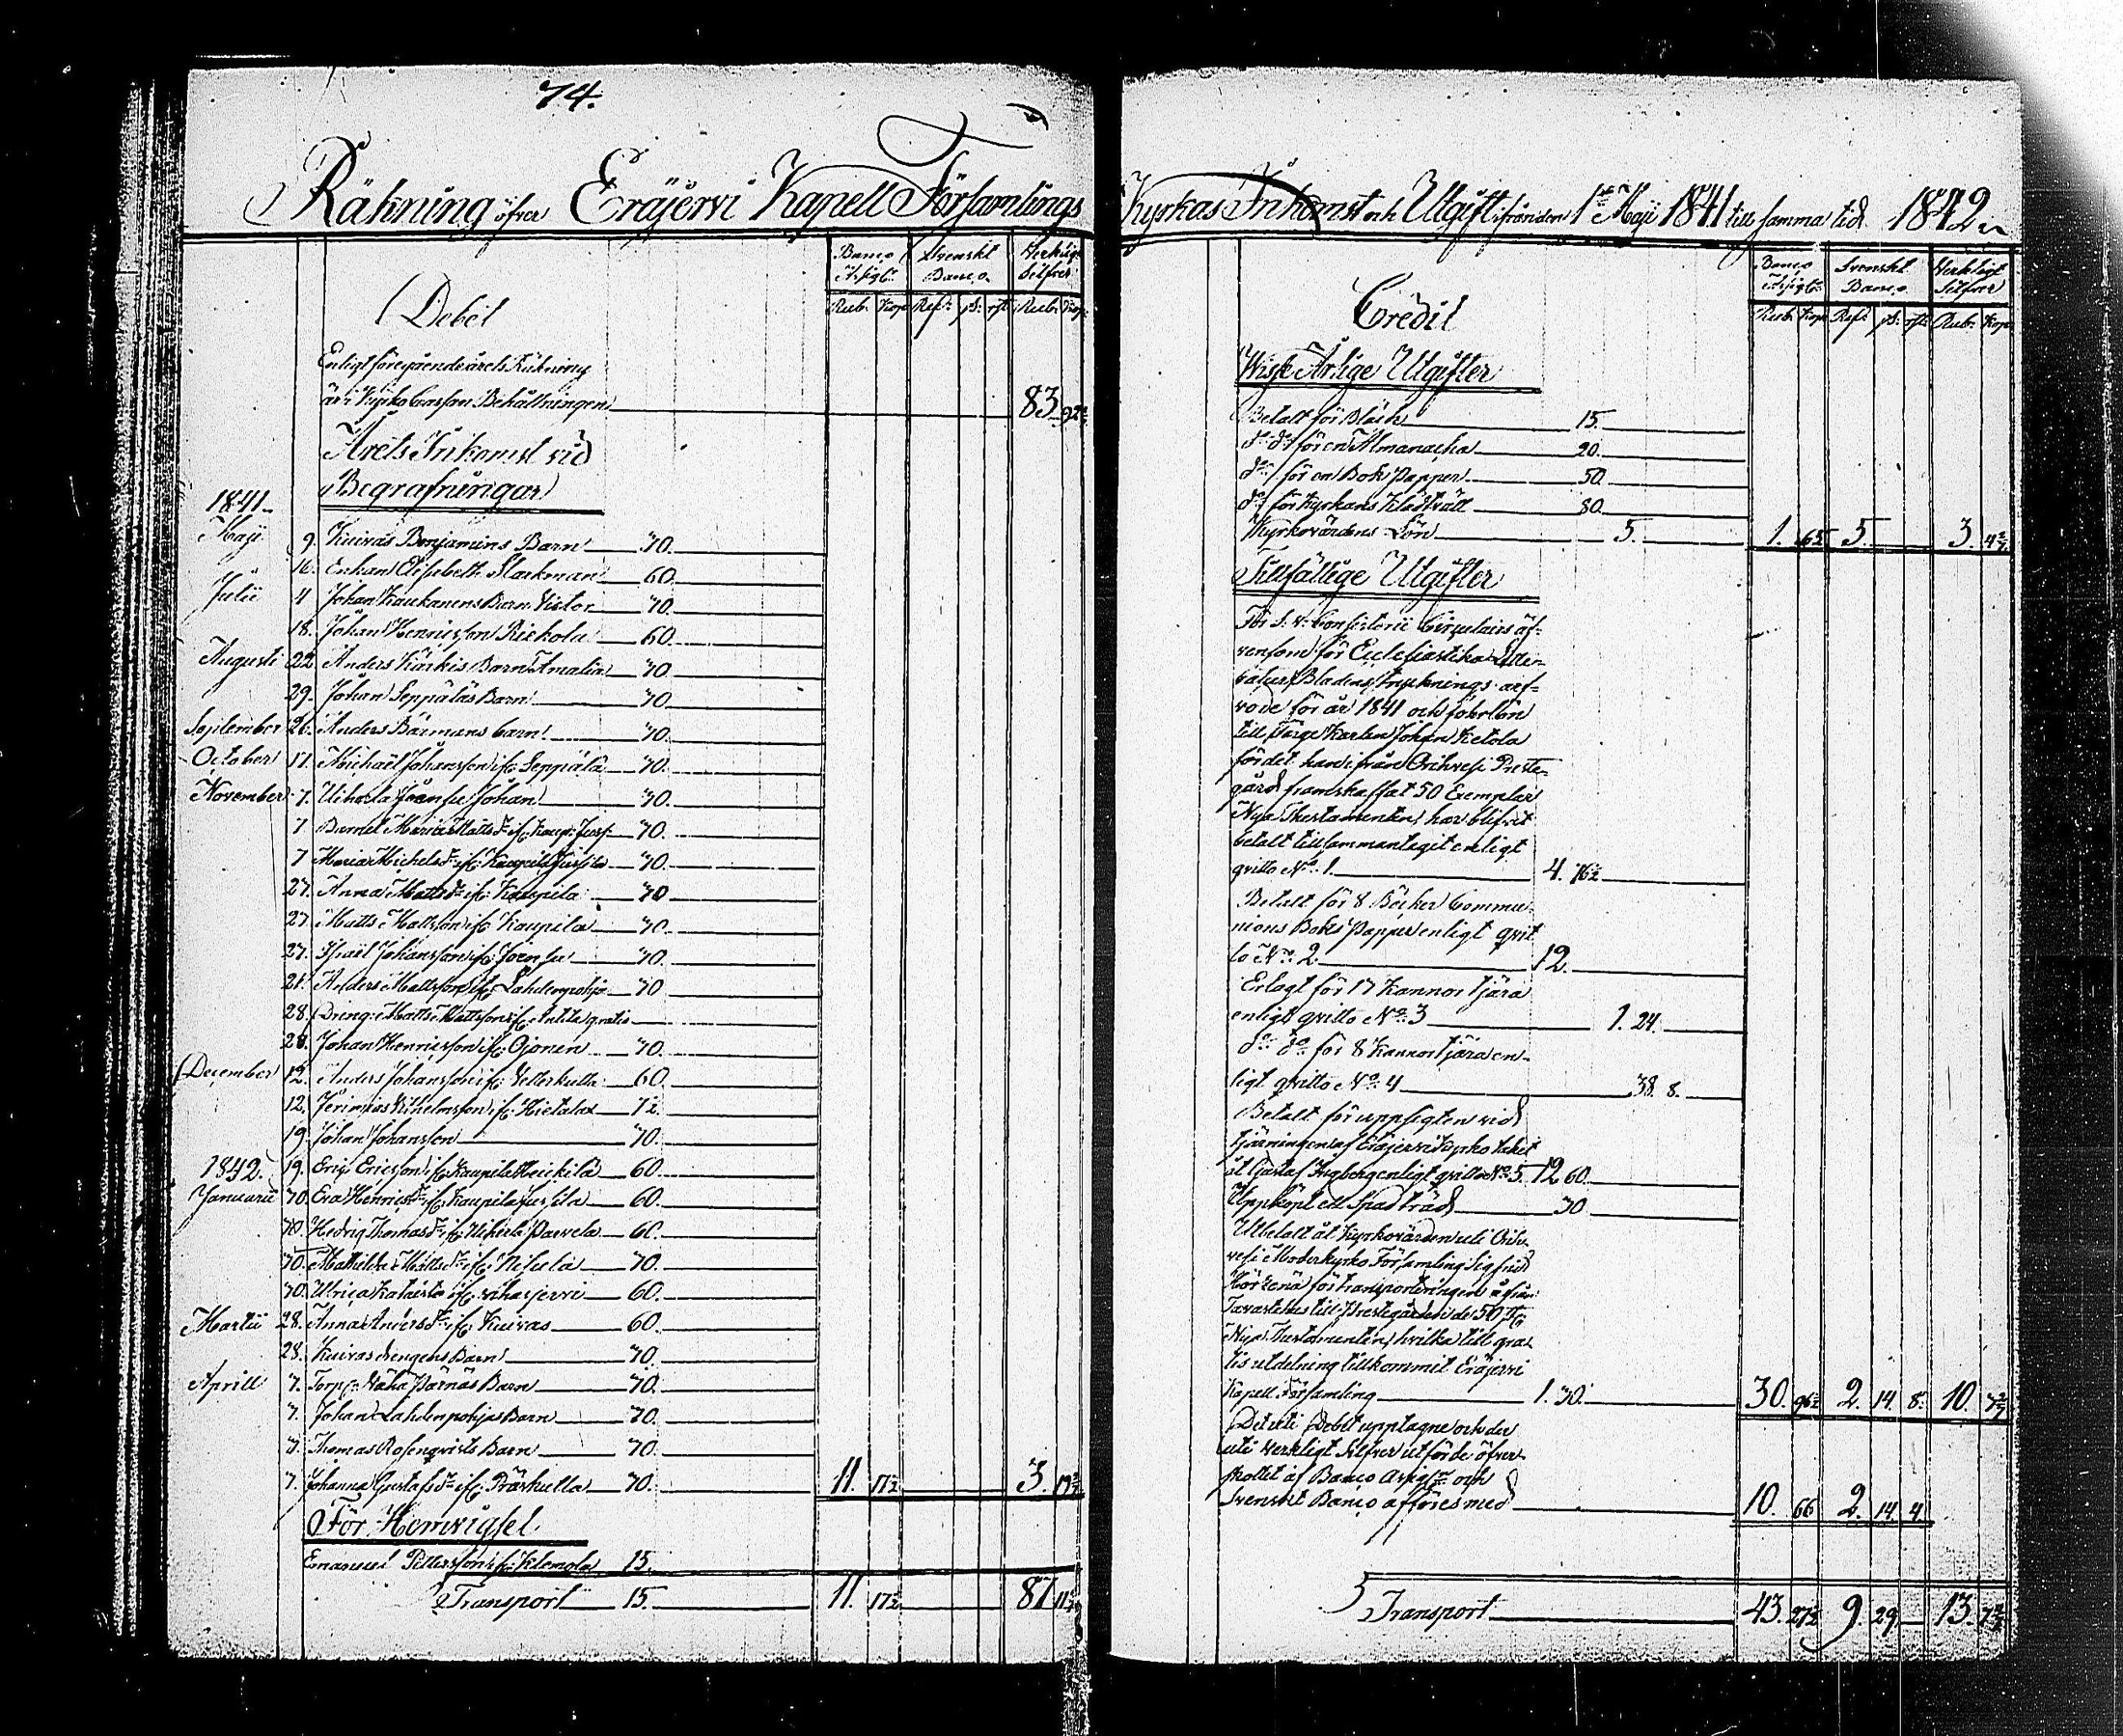 74.
Räkning öfver Eräjervi Kapell Församlings
Banco Assigt: Svenskt Banco. Verkligt Silfver
Debet
Rub: Kop: Rdr: ß: rst: Rub: Kop:
Enligt föregående årets Räkning
är i Kyrko Cassan Behållningen 83.
Årets Inkomst vid
Begrafningar
1841.
Maji 9. Kuivas Benjamins Barn 70.
16. Enkan Elisabeth Slackman 60.
Julii 4 Johan Kaukanens Barn Victor 70.
18. Johan Henricsson Riekola 60.
Augusti 22 Anders Kärkis Barn Amalia 70.
29. Johan Seppäläs Barn 70.
September 26. Anders Bärmans barn 70.
October 17. Michael Johansson if: Seppälä 70.
November 7. Uiherla Juansu Johan 70.
7 Barnet Maria Matts Dr: if: Kaup: Juss: 70.
7 Maria Michels Dr: if: Kaupila Jussila 70.
27. Anna Matts Dr: if: Kaupila 70
27. Matts Mattsson if: Kaupila 70.
27. Israel Johansson if: Joensu 70.
21. Anders Mattsson if: Lahdenpohja 70
28. Dreng: Matts Mattsson if: Antila gratis
28. Johan Henricsson if: Ojonen 70.
December 12. Anders Johansson if: Vetterkulla 60.
12. Jerimias Wilhelmsson if: Hietala 72.
19 Johan Johansson 70.
1842. 19. Eric Ericsson if: Kaupila Heickilä 60.
Januarii 70. Eva Henrics Dr: if: Kaupila Jussila 60.
70. Hedvig Thomas Dr: if: Uiherla Parvela 60.
70. Mathilda Matts Dr: if: Nisula 70.
70. Ulrica if: 60.
Martii 28. Anna Anders Dr: if: Kuivas 60.
28. Kuivas drengens Barn 70.
Aprill 7. Torp: Vähä Pärnäs Barn 70.
7. Johan Lahdenpohjas Barn 70.
7. Thomas Rosenqvists Barn 70.
7. Johanna Gustafs Dr: if: Präskulla 70. 11. 17½ 3.
För Hemvigsel.
Emanuel Pettersson if: Klemola 15.
Transport 15. 11. 17½ 87
Kyrkas Inkomst och Utgift ifrån den 1ste Maji 1841 till samma tid 1842
Banco Assigt: Svenskt Banco. Verkligt Silfver
Credit
Rub: Kop: Rdr: ß: rst: Rub: Kop:
Wisse Årlige Utgifter
Betalt för Bläck 15.
do: do: för en Almanacka 20.
do: för en Bok Papper 50.
do: för Kyrkans Klädtvätt 80.
Kyrkovärdens Lön 5. 1. 65 5. 3.
Tillfällige Utgifter
För S: V: Consistorii Circulairs äf-
vensom för Ecclesiastika Litte-
ratur Bladens trycknings arf-
vode för år 1841 och forlön
till Färge Karlen Johan Ketola
för det han ifrån Orihvesi Preste-
gård framskaffat 50 Exemplar
Nya Thestamenten, har blifvit
betalt tillsammantaget enligt
qvitto No: 1. 4. 76½
Betalt för 8 Böcker Commu-
nions Boks Papper enligt qvit
to No: 2 12.
Erlagt för 17 Kannor tjära
enligt qvitto No: 3 1. 24.
do: do: för 8 Kannor tjära en-
ligt qvitto No: 4 38. 8.
Betalt för uppsigten vid
tjärningen af Eräjervi Kyrko taket
åt Gustaf Ingberg enligt qvitto No: 5. 12 60.
Uppköpt ett Spad träd 30
Utbetalt åt Kyrkovärden uti Orih-
vesi Moderkyrko Församling Sigfrid
för transporteringen ifrån
Tavastehus till Prestegården de 50 st:
Nya Thestamenten, hvilka till gra-
tis utdelning tillkommit Eräjervi
Kapell Församling 1. 30. 30. 96½ 2. 14. 8. 10.
Det uti Debet upptagne och der
uti verkligt Silfver utförde öfver-
skottet af Banco Assigt: och
Svenskt Banco afföres med 10. 66 2. 14. 4
Transport 43. 27½ 9. 29. 13.